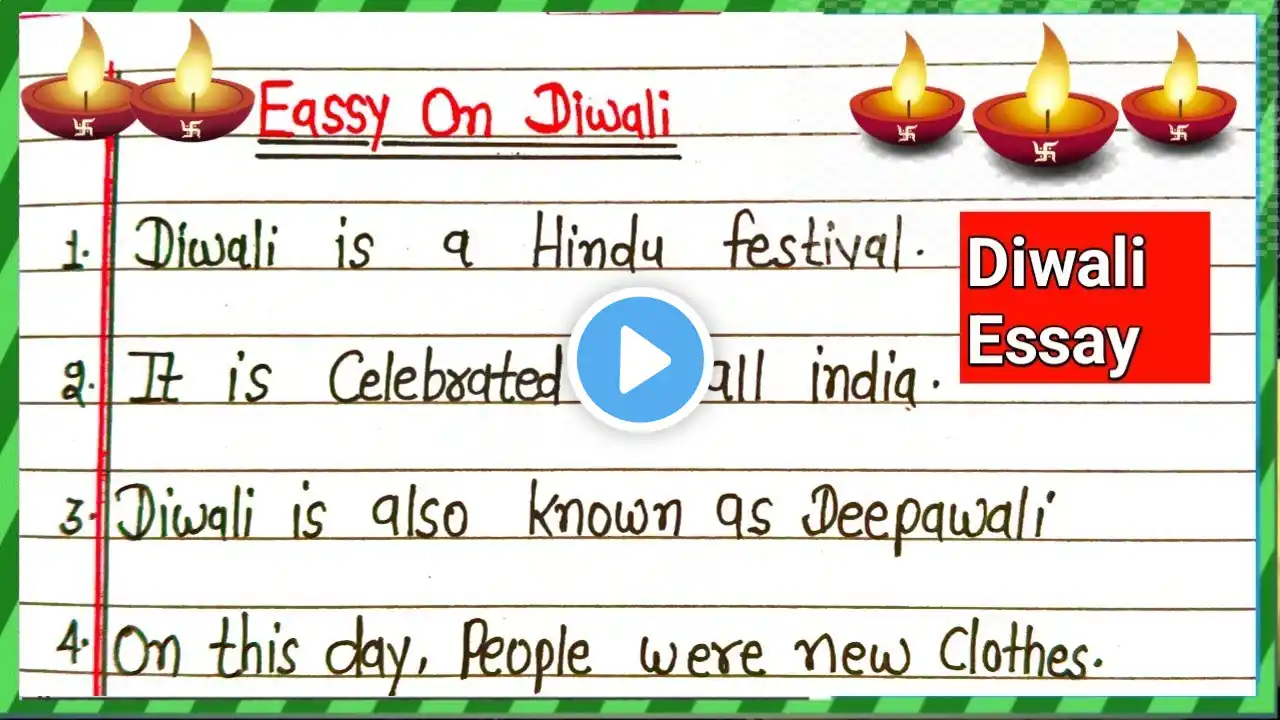 Eassy On Diwali
1. Diwali is a Hindu festival.
Diwali
Essay
2. It is Celebrated all india.
3. Diwali is also known as Deepawali
4. On this day, People were new Clothes.